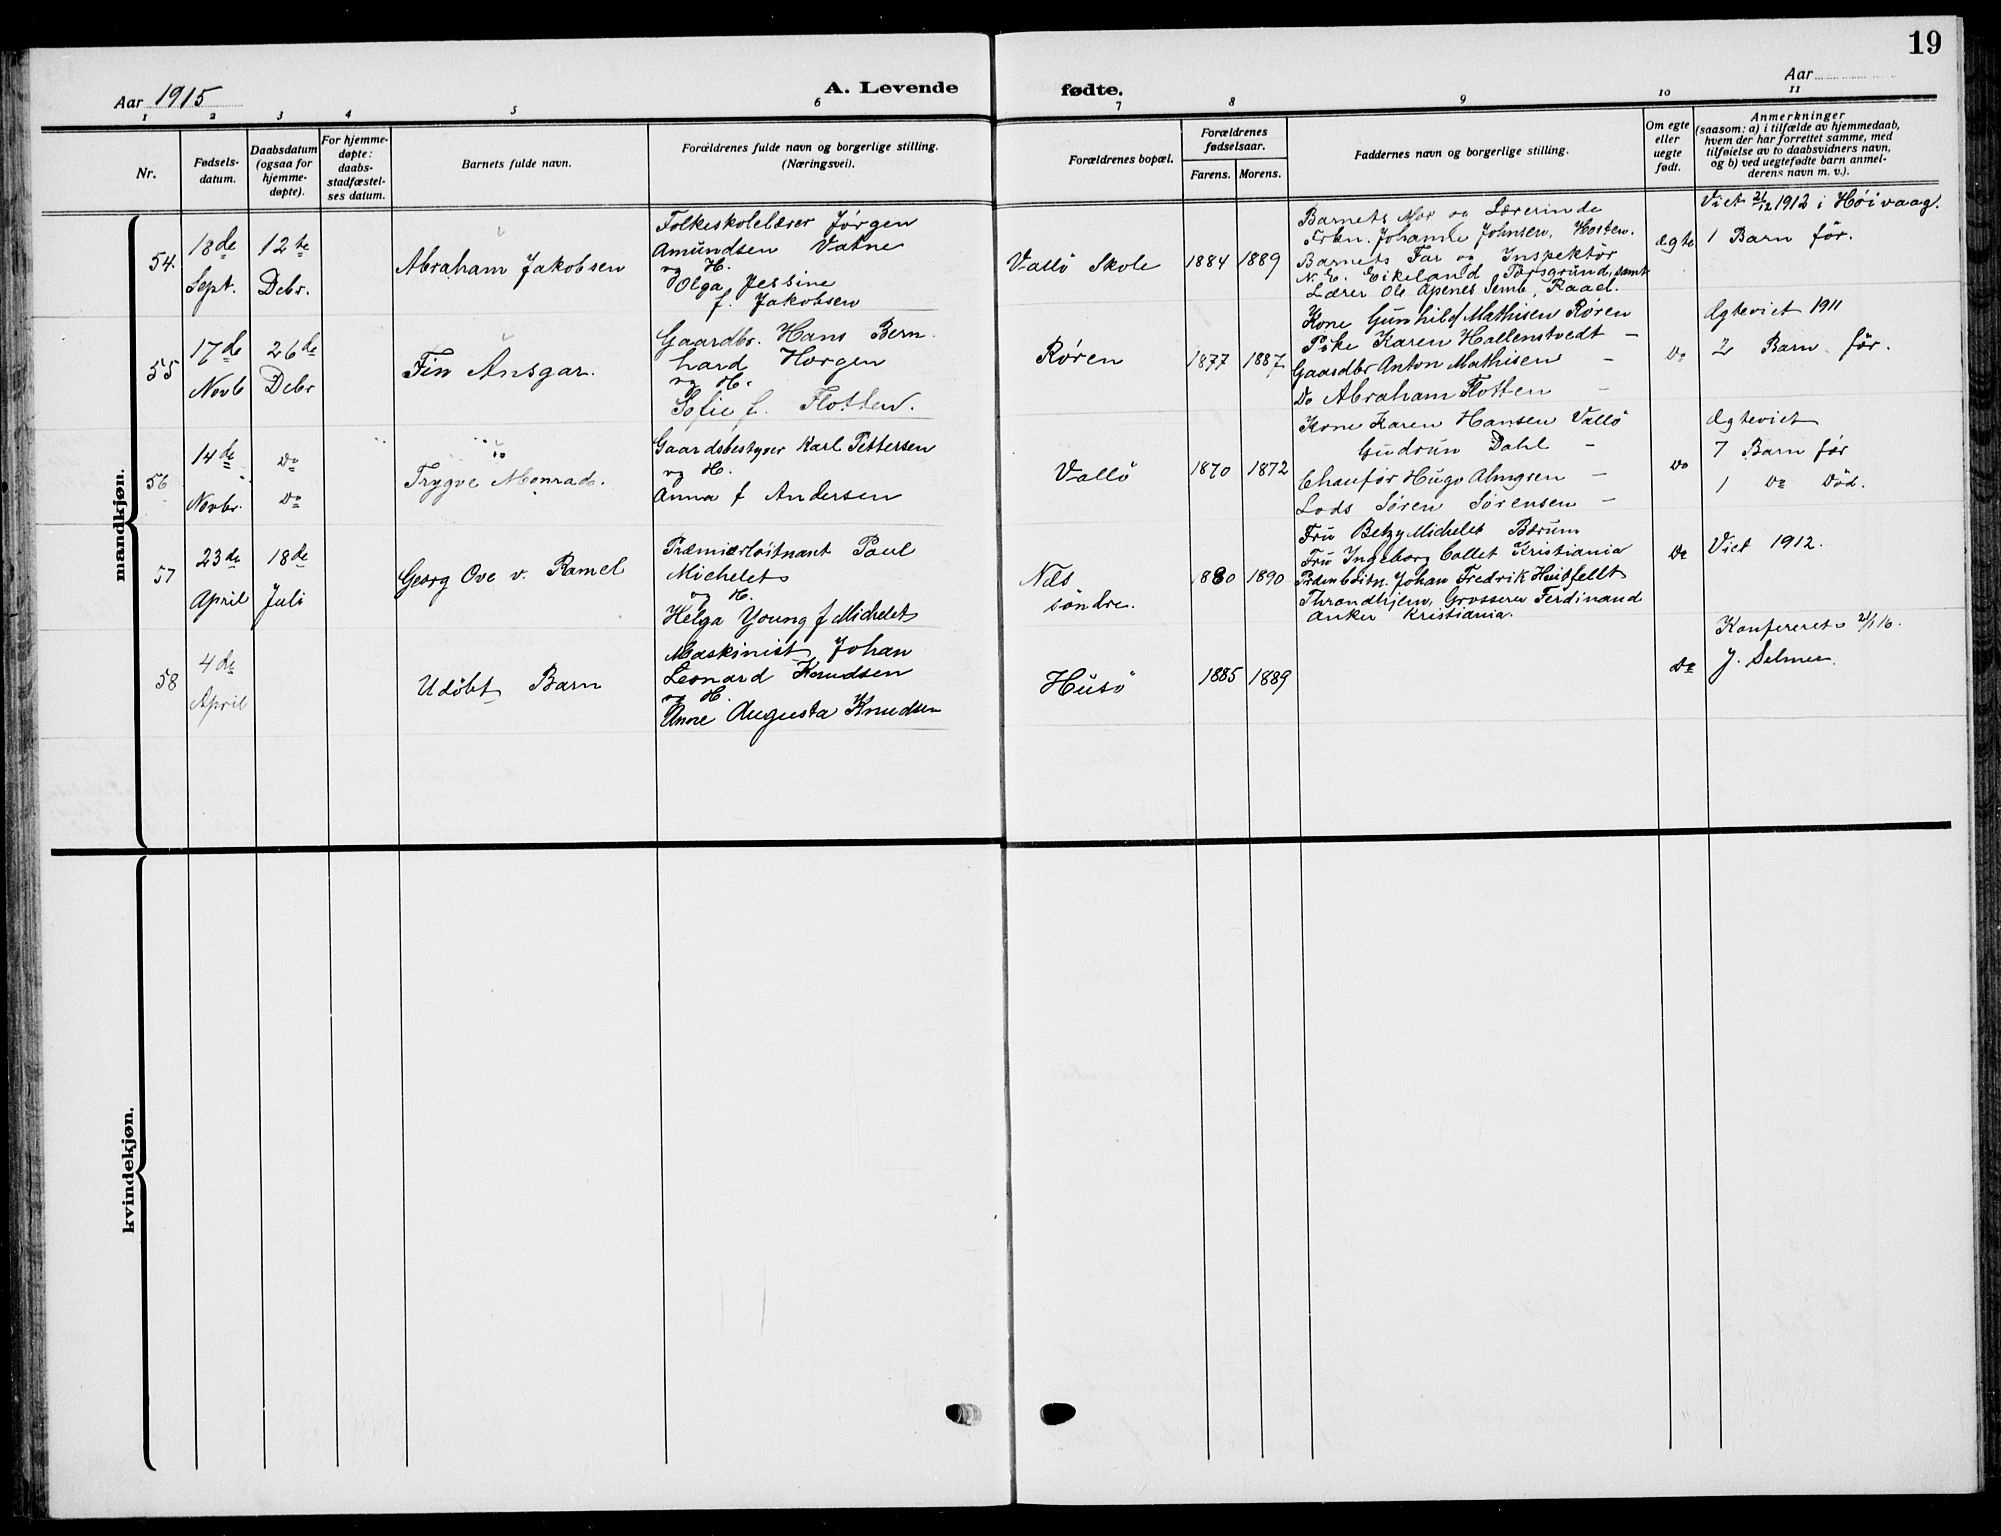 19
Aar 1915
A. Levende
fødte.
Aar
1 2 3 4 5 6 7 8 9 10 11
Nr.
Fødsels-
datum.
Daabsdatum
(ogsaa for
hjemme-
døpte).
For hjemme-
døpte:
daabs-
stadfæstel-
ses datum.
Barnets fulde navn.
Forældrenes fulde navn og borgerlige stilling.
(Næringsvei).
Forældrenes bopæl.
Forældrenes
fødselsaar.
Farens. Morens.
Faddernes navn og borgerlige stilling.
Om egte
eller
uegte
født.
Anmerkninger
(saasom: a) i tilfælde av hjemmedaab,
hvem der har forrettet samme, med
tilføielse av to daabsvidners navn,
og b) ved uegtefødte barn anmel-
derens navn m. v.).
mandkjøn.
54.
18de
Sept.
12te
Debr.
Abraham Jakobsen
Folkeskolelærer Jørgen
Amundsen Vatne
og H.
Olga Jessine
f. Jakobsen
Vallö Skole
1884
1889
Barnets Mor og Lærerinde
Frkn. Johanne Johnsen, Hosten.
Barnets Far og Inspektör
N. E. Eikeland Porsgrund, samt
Lærer Ole Apenes Semb, Raael.
Ægte
Viet 26/12 1912 i Höivaag.
1 Barn för.
55
17de
Novb
26de
Debr
Fin Ansgar.
Gaardbr. Hans Bern
hard Horgen
og H.
Sofie f. Flotten.
Røren
1877
1887
Kone Gunhild Mathisen Røren
Pike Karen Hallenstvedt -
Gaardbr Anton Mathisen -
Do Abraham Flotten -
Do
Ægteviet 1911
2 Barn før.
56
14de
Novbr.
Do
Do
Trygve Monrad.
Gaardsbestyrer Karl Pettersen
og H.
Anna f Andersen
Vallö
1870
1872
Kone Karen Hansen Vallö
Gudrun Dahl -
Chauför Hugo Almgren -
Lods Sören Sörensen -
Do
Ægteviet
7 Barn før
1 Do död.
57
23de
April
18de
Juli
Georg Ove v. Ramel
Præmierløitnant Paul
Michelet
og H.
Helga Young f Michelet
Næs
söndre.
1880
1890
Fru Betzy Michelet Bærum
Fru Ingeborg Collet Kristiania
Johan Fredrik Huitfellt
Throndhjem, Grosserer Ferdinand
Anker Kristiania.
Do
Viet 1912.
58
4de
April
Udöbt Barn
Maskinist Johan
Leonard Knudsen
og H.
Anne Augusta Knudsen
Husö
1885
1889
Do
Konfereret 21/1 16.
J. Selmer.
kvindekjøn.